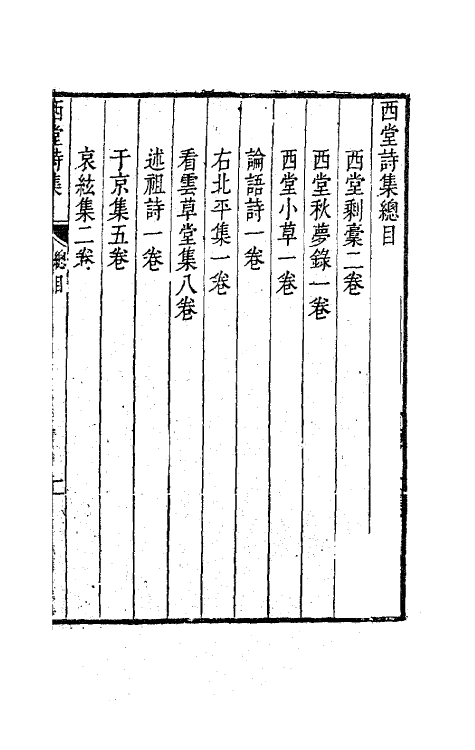 西堂詩集總目
西堂剩藁二卷
西堂秋夢錄一卷
西堂小草一卷
論語詩一卷
右北平集一卷
看雲草堂集八卷
述祖詩一卷
于京集五卷
哀絃集二卷
西堂詩集
總目
一